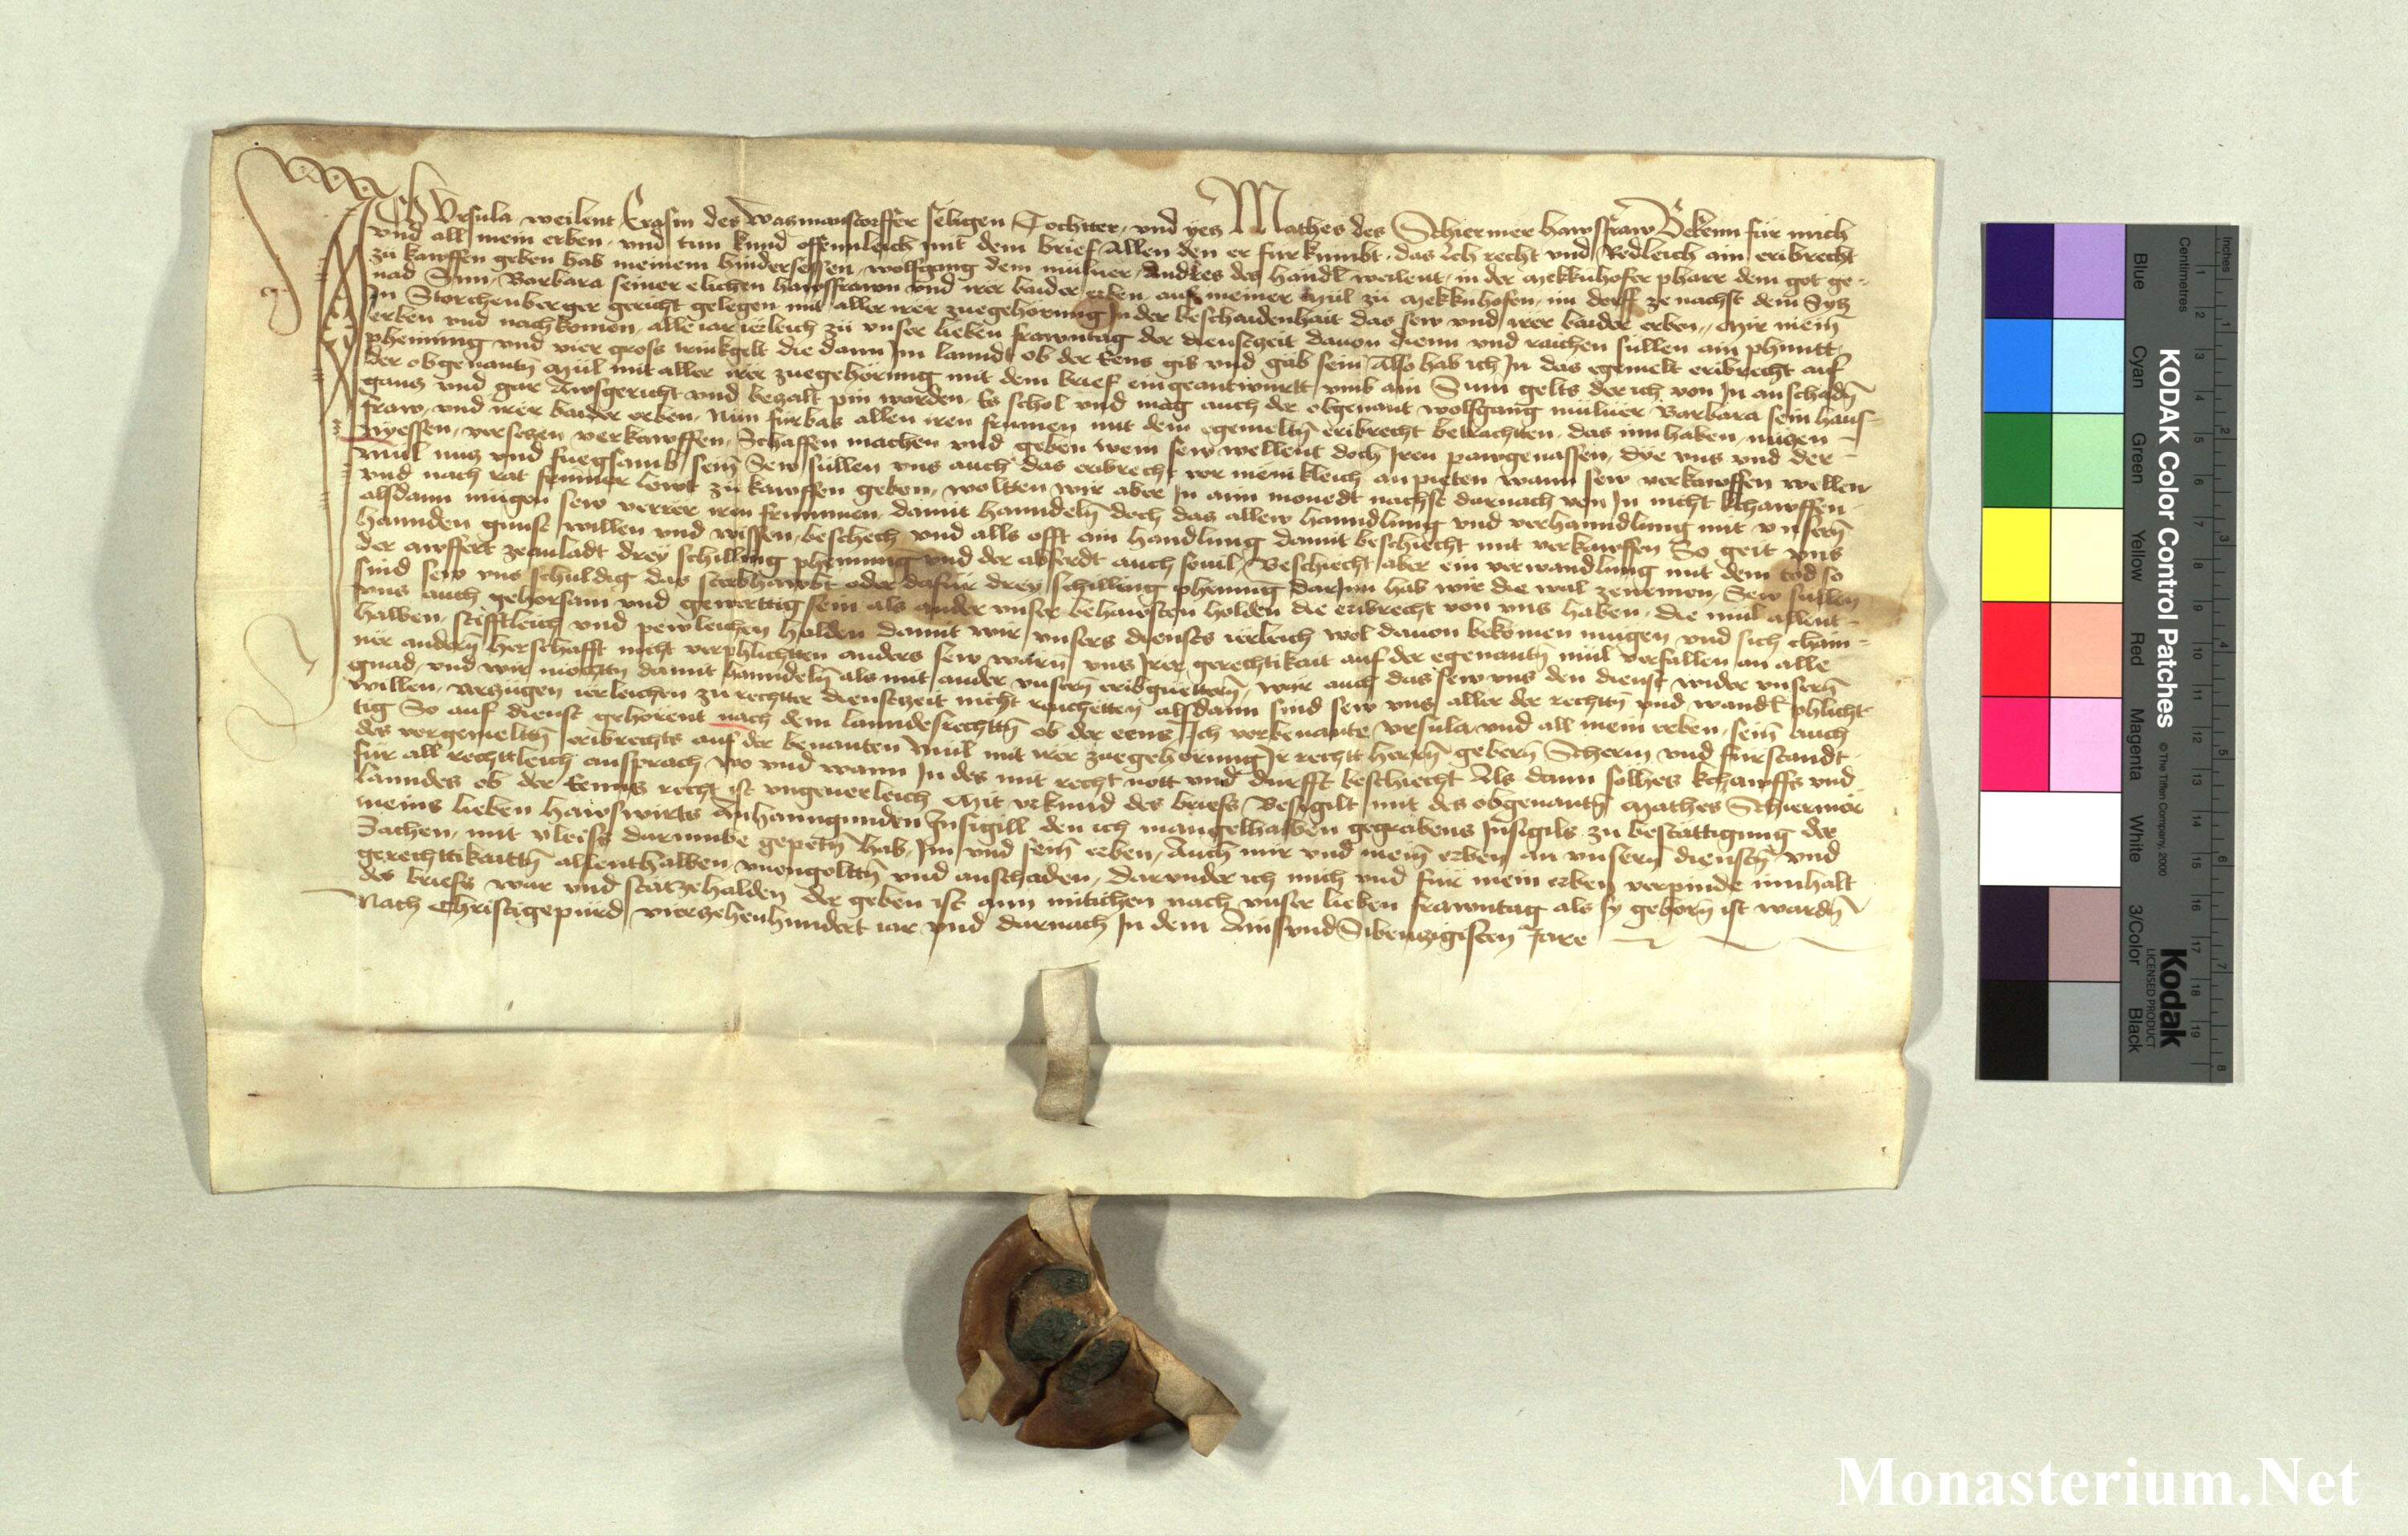 Ich Vrsula weilent Erasm des Wasmanstorffer seligen Tochtter, vnd yez Mathes des Schiermer hawsfraw Bekenn für mich
vnd all mein erben, vnd tun kund offennleich mit dem brief Allen den er fürkumbt, das ich recht vnd Redleich ain eribrecht
zü kawffen geben hab meinem hindersessen, wolfgang dem mülner, Andres des Händl weilent, in der Mekknhofer pharr dem got ge-
nad Sun, Barbara seiner elichen hawsfrawn vnd irer baider erben auf meiner Mül zü Mekknhofen, im dorff ze nachst dem Sytz
In Storchenberger gericht gelegen mit aller irer zuegehorung In der beschaidenhait das sew vnd irer baider erben, Mir mein
erben vnd nachkomen, alle iar ierleich zü vnser lieben frawntag der dienstzeit dauon dienn vnd raichen süllen ain phuntt
phenning vnd vier gross trinkgelt die dann Im lanndt ob der Enns gib vnd gäb sein Also hab ich In das egemelt eribrecht auf
der obgenantn Mül mit aller irer zuegehörung mit dem brief eingeantwurtt vmb ain Sum gelts der ich von In anschadn
ganz vnd gar Awsgericht vnd bezalt pin worden, Es schol vnd mag auch der obgenant wolfgang mülner Barbara sein haus-
fraw, vnd irer baider erben, Nün fürbas allen iren frumen mit dem egemeltn eribrecht betrachtten, das innhaben, nützen
nyessen, versetzen verkawffen, Schaffen machen vnd geben wem sew wellent doch Iren pawgenassen, dye vns vnd der
mül nuz vnd fuegsamb sein Sew süllen vns auch das eribrecht vor menikleich an pieten wann sew verkawffen wellen
vnd nach rat frumer lewt zü kawffen geben, woltten wir aber In aim monedt nachst darnach von In nicht khawffen
alsdann mügen sew verrer iren frummen, damit hanndeln doch das allew hanndlung vnd verhanndlung mit vnsern
hannden gunst willen vnd wissen, beschech vnd alls offt ain handlung damit beschiecht mit verkawffen So geit vns
der awffert zeanladt drey schilling phenning vnd der abferdt auch souil, Beschiecht aber ein verwandlung mit dem tod so
sind sew vns schuldig das sterbhawbt oder dafür drey schilling phening darInn hab wir die wal zenemen, Sew süllen
vns auch gehorsam vnd gewerttig sein als ander vnser behausten holden die eribrecht von vns haben, die mül allent-
halben, stifftleich vnd pewleichen halden damit wir vnsers diensts ierleich wol dauon bekömen mügen vnd sich chain-
ner andern herschafft nicht verphlichtten anders sew wärn vns Irer gerechtikait auf der egenantn mül verfallen an alle
gnad, vnd wir mochttn damit hanndeln als mit ander vnsern eribguettern, wär auch das sew vns den dienst wider vnsern
willen, verzügen ierleichen zu rechtter dienstzeit nicht raichetten alsdann sind sew vns aller der rechttn vnd wandl phlicht-
tig So auf dienst gehörent nach dem lanndesrechttn ob der enns Ich vorbenante vrsula vnd all mein erben, sein auch
des vorgemeltn eribrechts auf der benanten Mül mit irer zuegehörung Ir rechtt herrn gebern Scherm vnd fürstandt
für all rechttleich ansprach wo vnd wann In des mit recht nott vnd durfft beschiecht Als dann solhes kchawffs vnd
lanndes ob der Enns recht ist vngeuerleich Mit vrkund des briefs Besigilt mit des obgenantn Mathes Schiermer
meins lieben hawswirts Anhanngunden Insigill den ich mangelhalben gegrabens Insigils zu bestättigung der
Sachen, mit vleiss darumbe gepetn hab, Im vnd sein erben, Auch mir vnd mein erben an vnsern dienstn vnd
gerechttikaittn allenthalben vnengolttn vnd anschaden, Darvnder ich mich vnd für mein erben verpinde innhalt
des briefs war vnd stätzehalden der geben ist ann mitichen nach vnser lieben frawntag als sy geborn ist wardn
Nach Christigepürd vierzehenhundert iar vnd darnach In dem Ainsvnd Sibentzigisten Jare
KODAK Color Control Patches
© The Tiffen Company, 2000
Kodak
LICENSED PRODUCT
Blue Cyan Green Yellow Red Magenta White 3/Color Black
Centimetres
Inches
1 2 3 4 5 6 7 8 9 10 11 12 13 14 15 16 17 18 19
1 2 3 4 5 6 7 8
Monasterium.Net